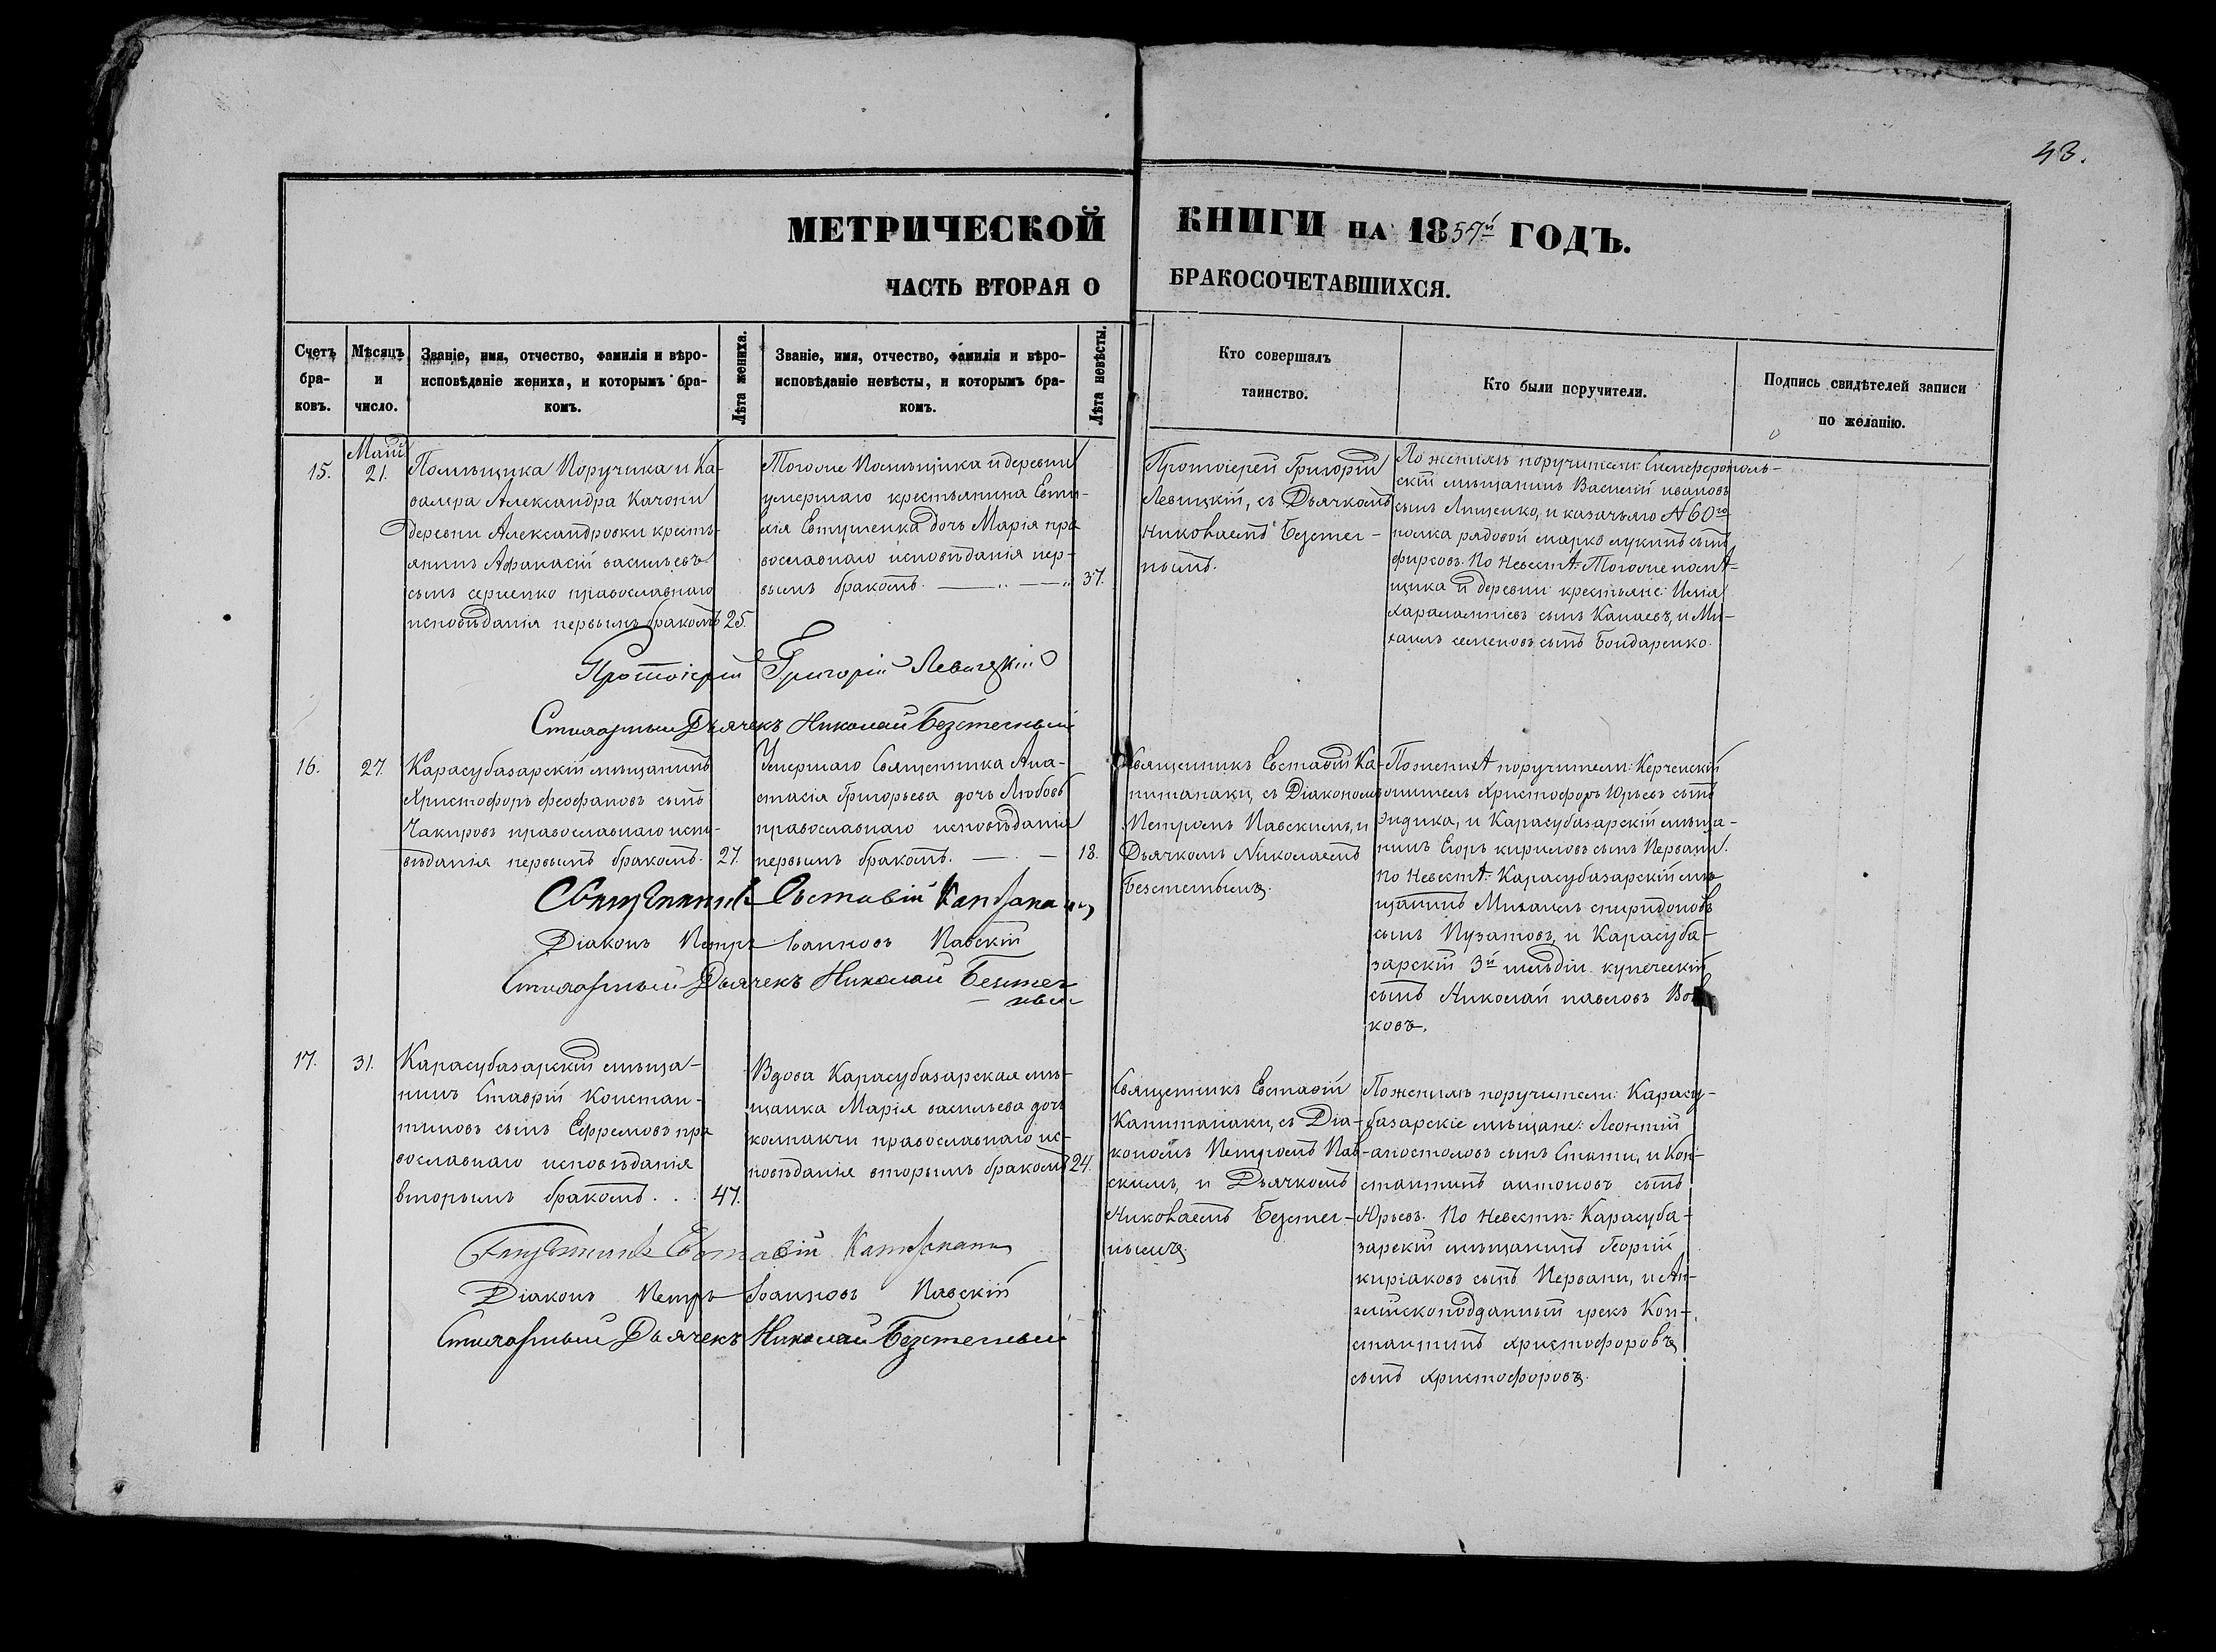 43.
МЕТРИЧЕСКОЙ КНИГИ НА 1857й ГОДЪ.
ЧАСТЬ ВТОРАЯ О БРАКОСОЧЕТАВШИХСЯ.
Счетъ бра-ковъ.
Мѣсяцъ и число.
Званіе, имя, отчество, фамилія и вѣро-
исповѣданіе жениха, и которымъ бра-
комъ.
Лѣта жениха.
Званіе, имя, отчество, фамилія и вѣро-
исповѣданіе невѣсты, и которымъ бра-
комъ.
Лѣта невѣсты.
Кто совершалъ
таинство.
Кто были поручители.
Подпись свидѣтелей записи
по желанію.
15.
Маій
21.
Помѣщика Поручика и Ка-
валера Александра Качони
деревни Александровки кресть-
янинъ Афанасій васильевъ
сынъ сериенко православнаго
исповѣданія первымъ бракомъ
25.
Тогоже Помѣщика и деревни
умершаго крестьянина Евти-
хія Евтушенка дочь Марія пра
вославнаго исповѣданія пер-
вымъ бракомъ.
37.
Протоіерей Григорій
Левицкій, съ Дьячкомъ
Николаемъ Безтег-
нымъ.
По женихѣ поручители: Симферополь-
скій мѣщанинъ Василій ивановъ
сынъ Лищенко, и казачьяго № 60го
полка рядовой марко лукинъ сынъ
фирсовъ. По Невестѣ: Тогоже помѣ-
щика и деревни крестьяне: Илія
харалампіевъ сынъ Капаевъ, и Ми-
хаилъ семеновъ сынъ Бондаренко.
Протоіерей Григорій Левицкій
Стихарный Дьячекъ Николай Безтегный
16.
27.
Карасубазарскій мѣщанинъ
Христофоръ феофановъ сынъ
Чакировъ православнаго испо-
вѣданія первымъ бракомъ.
27.
Умершаго Священника Ана-
стасія Григорьева дочь Любовь
православнаго исповѣданія
первымъ бракомъ.
18.
Священникъ Евстафій Ка-
питанаки, съ Діакономъ
Петромъ Павскимъ, и
Дьячкомъ Николаемъ
Безтегнымъ.
По женихѣ поручители: Керченскій
житель Христофоръ Юрьевъ сынъ
Эндика, и Карасубазарскій мѣща-
нинъ Егоръ кириловъ сынъ Первани.
По Невестѣ: Карасубазарскій мѣ-
щанинъ Михаилъ спиридоновъ
сынъ Пузатовъ, и Карасуба-
зарскій 3й гильдіи купеческій
сынъ Николай павловъ
ковъ.
Священникъ Евстафій Капитанаки
Діаконъ Петръ Іоанновъ Павскій
Стихарный Дьячекъ Николай Безтег
ный
17.
31.
Карасубазарскій мѣща-
нинъ Ставрій Констан-
тиновъ сынъ Ефремовъ пра
вославнаго исповѣданія
вторымъ бракомъ. . .
47.
Вдова Карасубазарская мѣ-
щанка Марія васильева дочь
колпакчи православнаго ис-
повѣданія вторымъ бракомъ
24.
Священникъ Евстафій
Капитанаки, съ Діа-
кономъ Петромъ Пав-
скимъ, и Дьячкомъ
Николаемъ Безтег-
нымъ.
По женихѣ поручители: Карасу-
базарскіе мѣщане: Леонтій
апостоловъ сынъ Стати, и Кон-
стантинъ антоновъ сынъ
Юрьевъ. По Невестѣ: Карасуба-
зарскій мѣщанинъ Георгій
киріаковъ сынъ Первани, и Ан-
глійскоподданный грекъ Кон-
стантинъ христофоровъ
сынъ христофоровъ.
Священникъ Евстафій Капитанаки
Діаконъ Петръ Іоанновъ Павскій
Стихарный Дьячекъ Николай Безтегный